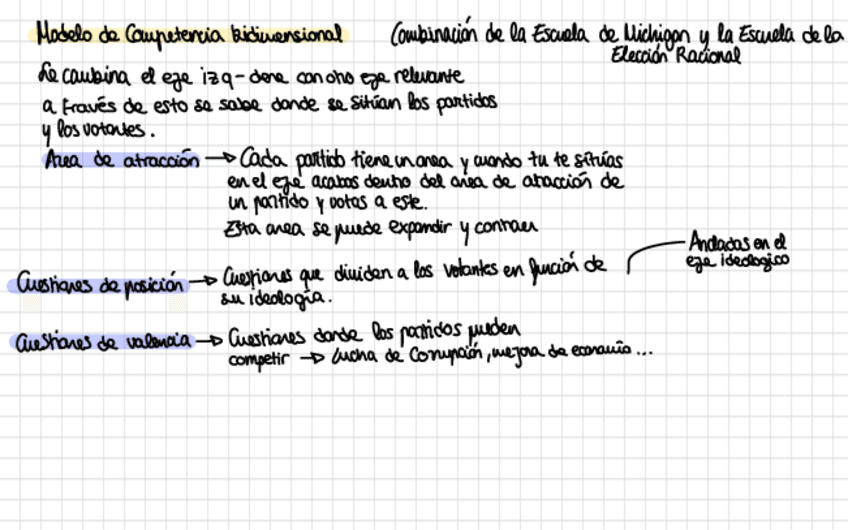 Modelo de Competencia bidimensional
Combinación de la Escuela de Michigan y la Escuela de la
Elección Racional
Se combina el eje izq-dcha con otro eje relevante
a través de esto se sabe donde se sitúan los partidos
y los votantes.
Area de atracción → Cada partido tiene un area y cuando tu te sitúas
en el eje acabas dentro del área de atracción de
un partido y votas a este.
Esta area se puede expandir y contraer
Ancladas en el
eje ideologico
Cuestiones de posición → Cuestiones que dividen a los votantes en función de
su ideología.
Cuestiones de valencia → Cuestiones donde los partidos pueden
competir → Lucha de Corrupción, mejora de economía...